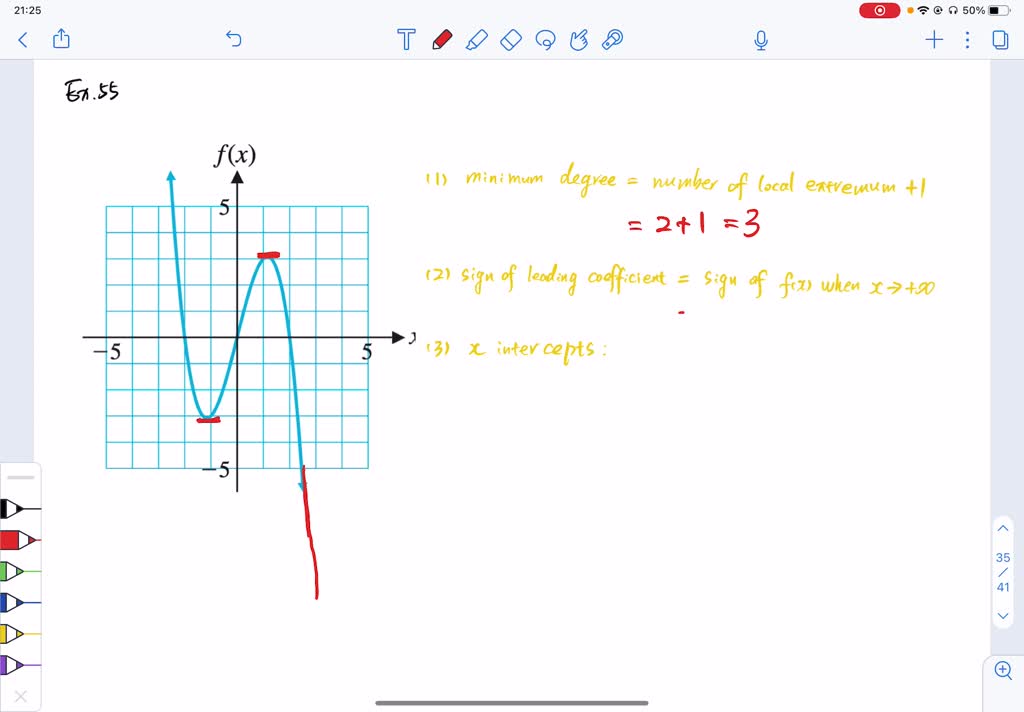 21:25
50%
Ex.55
f(x)
(1) minimum degree = number of local extremum +1
5
= 2+1 =3
(2) sign of leading coefficient = sign of f(x) when x→+∞
−5
5
x
(3) x intercepts:
−5
35
/
41